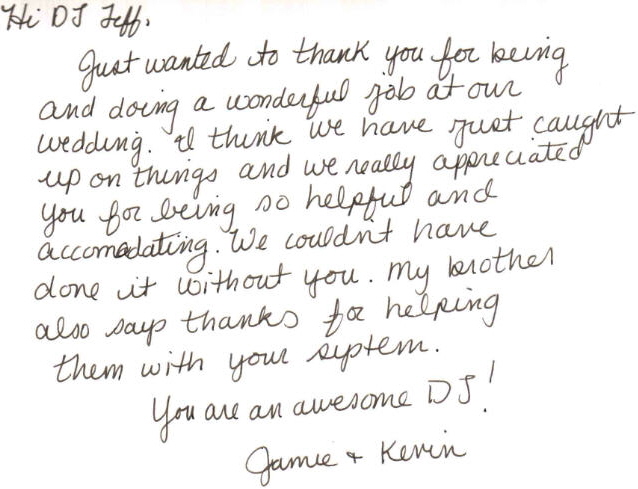 Hi DJ Jeff,
Just wanted to thank you for being
and doing a wonderful job at our
wedding. I think we have just caught
up on things and we really appreciated
you for being so helpful and
accomodating. We couldnt have
done it without you. My brother
also says thanks for helping
them with your system.
You are an awesome DJ!
Jamie + Kevin